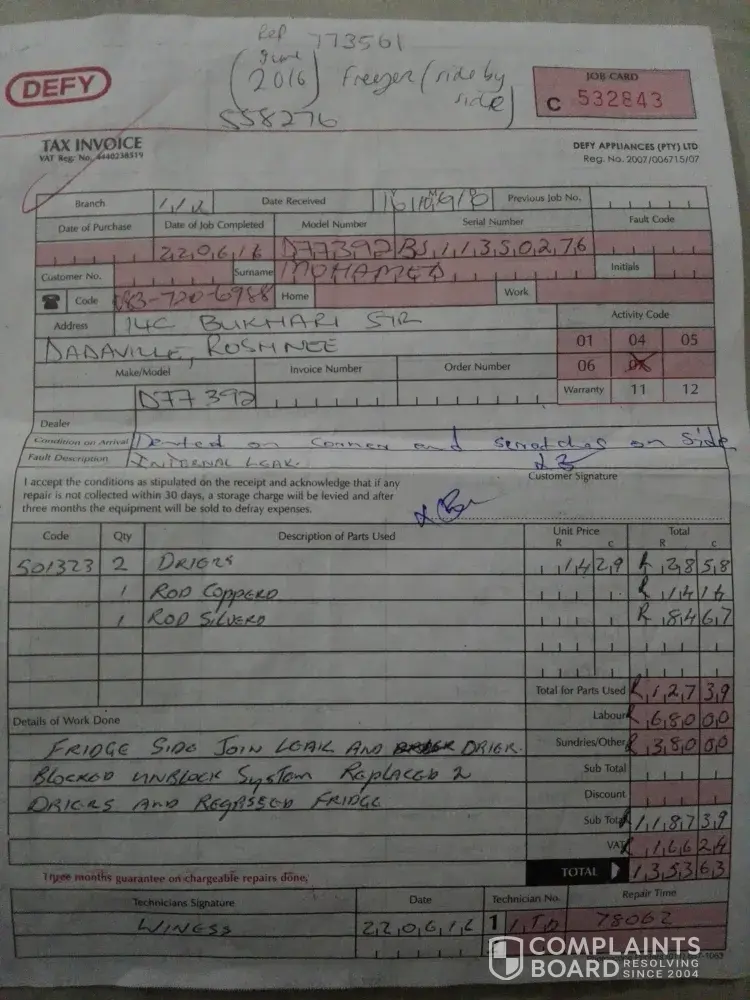 Ref 773561
(June 2016) Freezer (side by side)
558276
DEFY
JOB CARD
C 532843
TAX INVOICE
VAT Reg. No. 4440238519
DEFY APPLIANCES (PTY) LTD
Reg. No. 2007/006715/07
Branch Date Received Previous Job No.
Date of Purchase Date of Job Completed Model Number Serial Number Fault Code
220616 D77392 BS11350276
Customer No. Surname MOHAMED Initials
Code 083-720-6988 Home Work
Address 14C BUKHARI STR Activity Code
DADAVILLE, ROSHNEE 01 04 05
Make/Model Invoice Number Order Number 06
D77392 Warranty 11 12
Dealer
Condition on Arrival Dented on corner and scratches on side
Fault Description INTERNAL LEAK
Customer Signature
I accept the conditions as stipulated on the receipt and acknowledge that if any
repair is not collected within 30 days, a storage charge will be levied and after
three months the equipment will be sold to defray expenses.
Code Qty Description of Parts Used Unit Price Total
R c R c
501323 2 DRIERS 1429 R 2858
1 ROD COPPERD R 1414
1 ROD SILVERD R 8467
Total for Parts Used R 12739
Details of Work Done Labour R 68000
FRIDGE SIDE JOIN LEAK AND DRIER Sundries/Other R 38000
BLOCKED UNBLOCK SYSTEM REPLACED 2 Sub Total
DRIERS AND REGASSED FRIDGE Discount
Sub Total R 118739
VAT R 16624
TOTAL 135363
Three months guarantee on chargeable repairs done.
Technicians Signature Date Technician No. Repair Time
WINESS 220616 1 78062
COMPLAINTS
BOARD RESOLVING
SINCE 2004